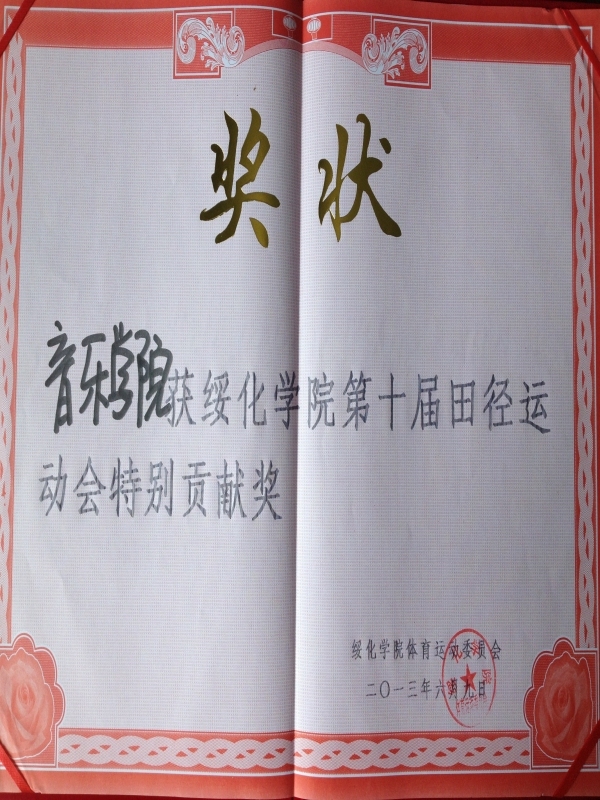 奖状
音乐学院获绥化学院第十届田径运
动会特别贡献奖
绥化学院体育运动委员会
二〇一三年六月九日